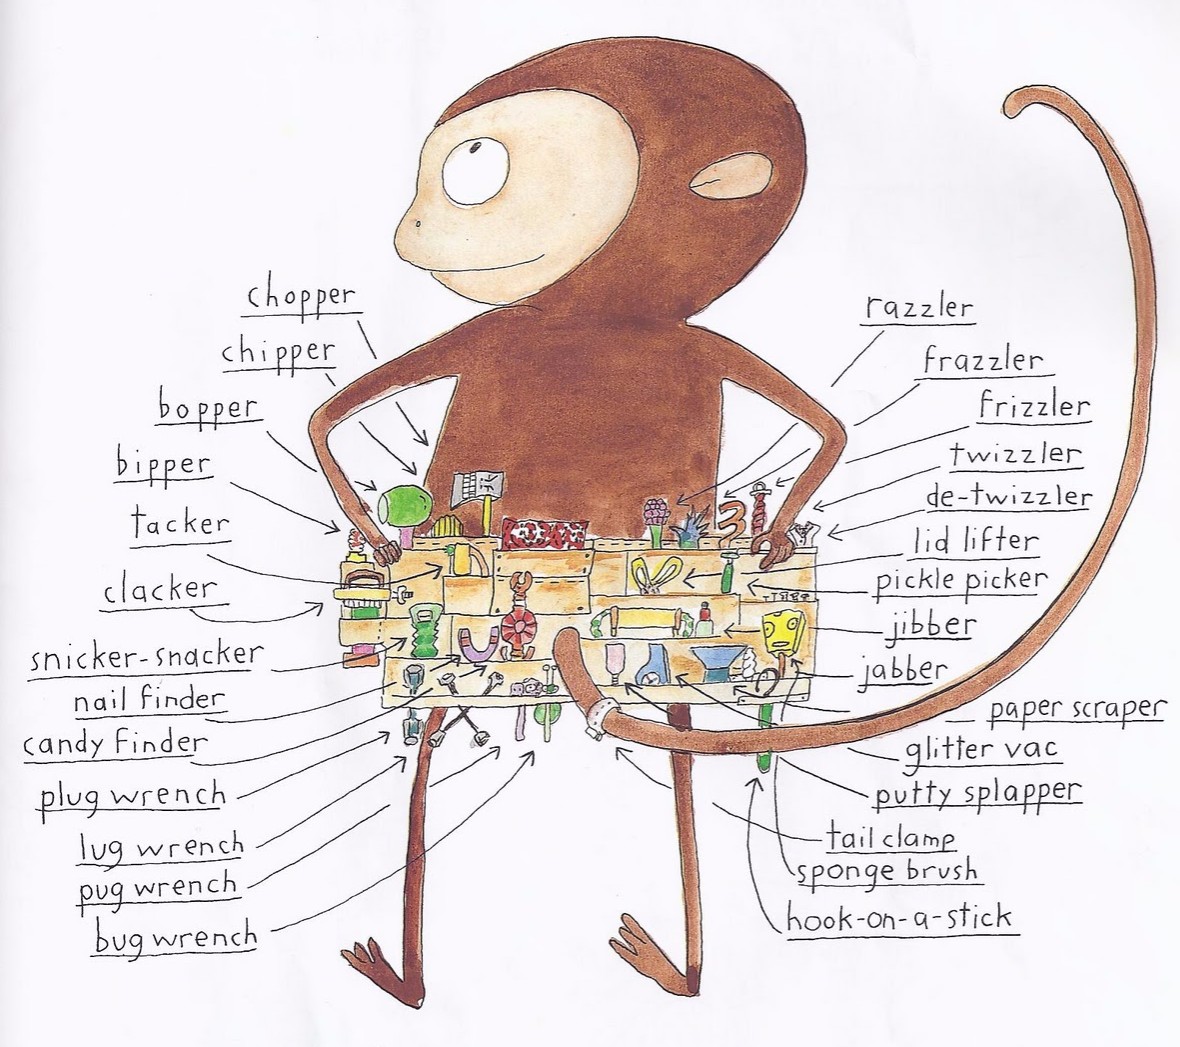 chopper
chipper
bopper
bipper
tacker
clacker
snicker-snacker
nail finder
candy finder
plug wrench
lug wrench
pug wrench
bug wrench
razzler
frazzler
frizzler
twizzler
de-twizzler
lid lifter
pickle picker
jibber
jabber
paper scraper
glitter vac
putty splapper
tail clamp
sponge brush
hook-on-a-stick